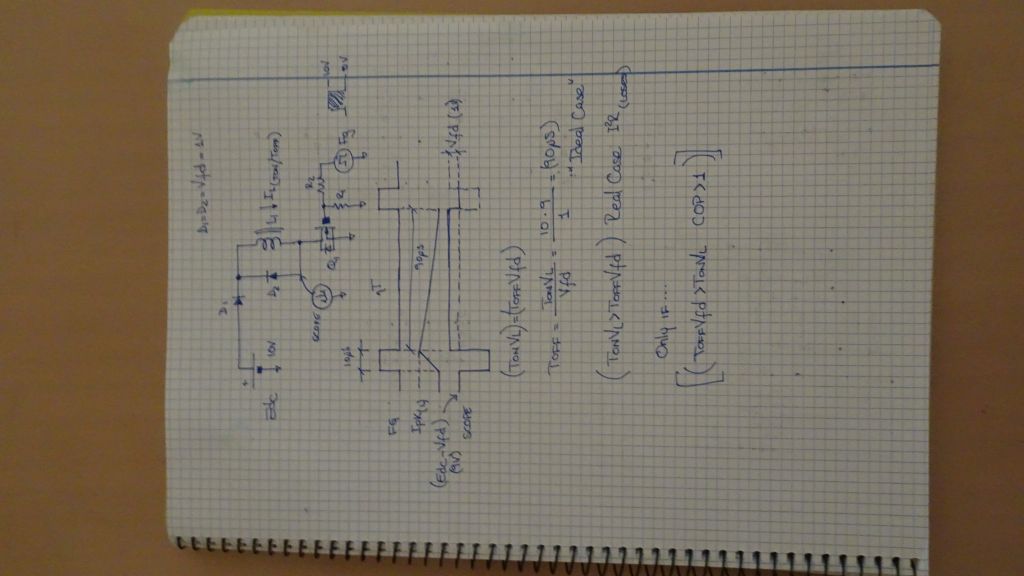 D1=D2=Vfd=1V
D1
Edc
10V
D2
L1
IL(TON/TOFF)
SCOPE
Q1
R2
R1
Fg
10V
0V
10µs
1T
FG
Ipk(L)
90µs
(Edc-Vfd)
(9V)
SCOPE
Vfd (1)
(TonVL)=(ToffVfd)
TOFF = TonVL / Vfd = 10·9 / 1 = (90µs)
"Ideal Case"
(TonVL>ToffVfd) Real Case I²R (Losses)
Only if....
[(ToffVfd>TonVL COP>1)]